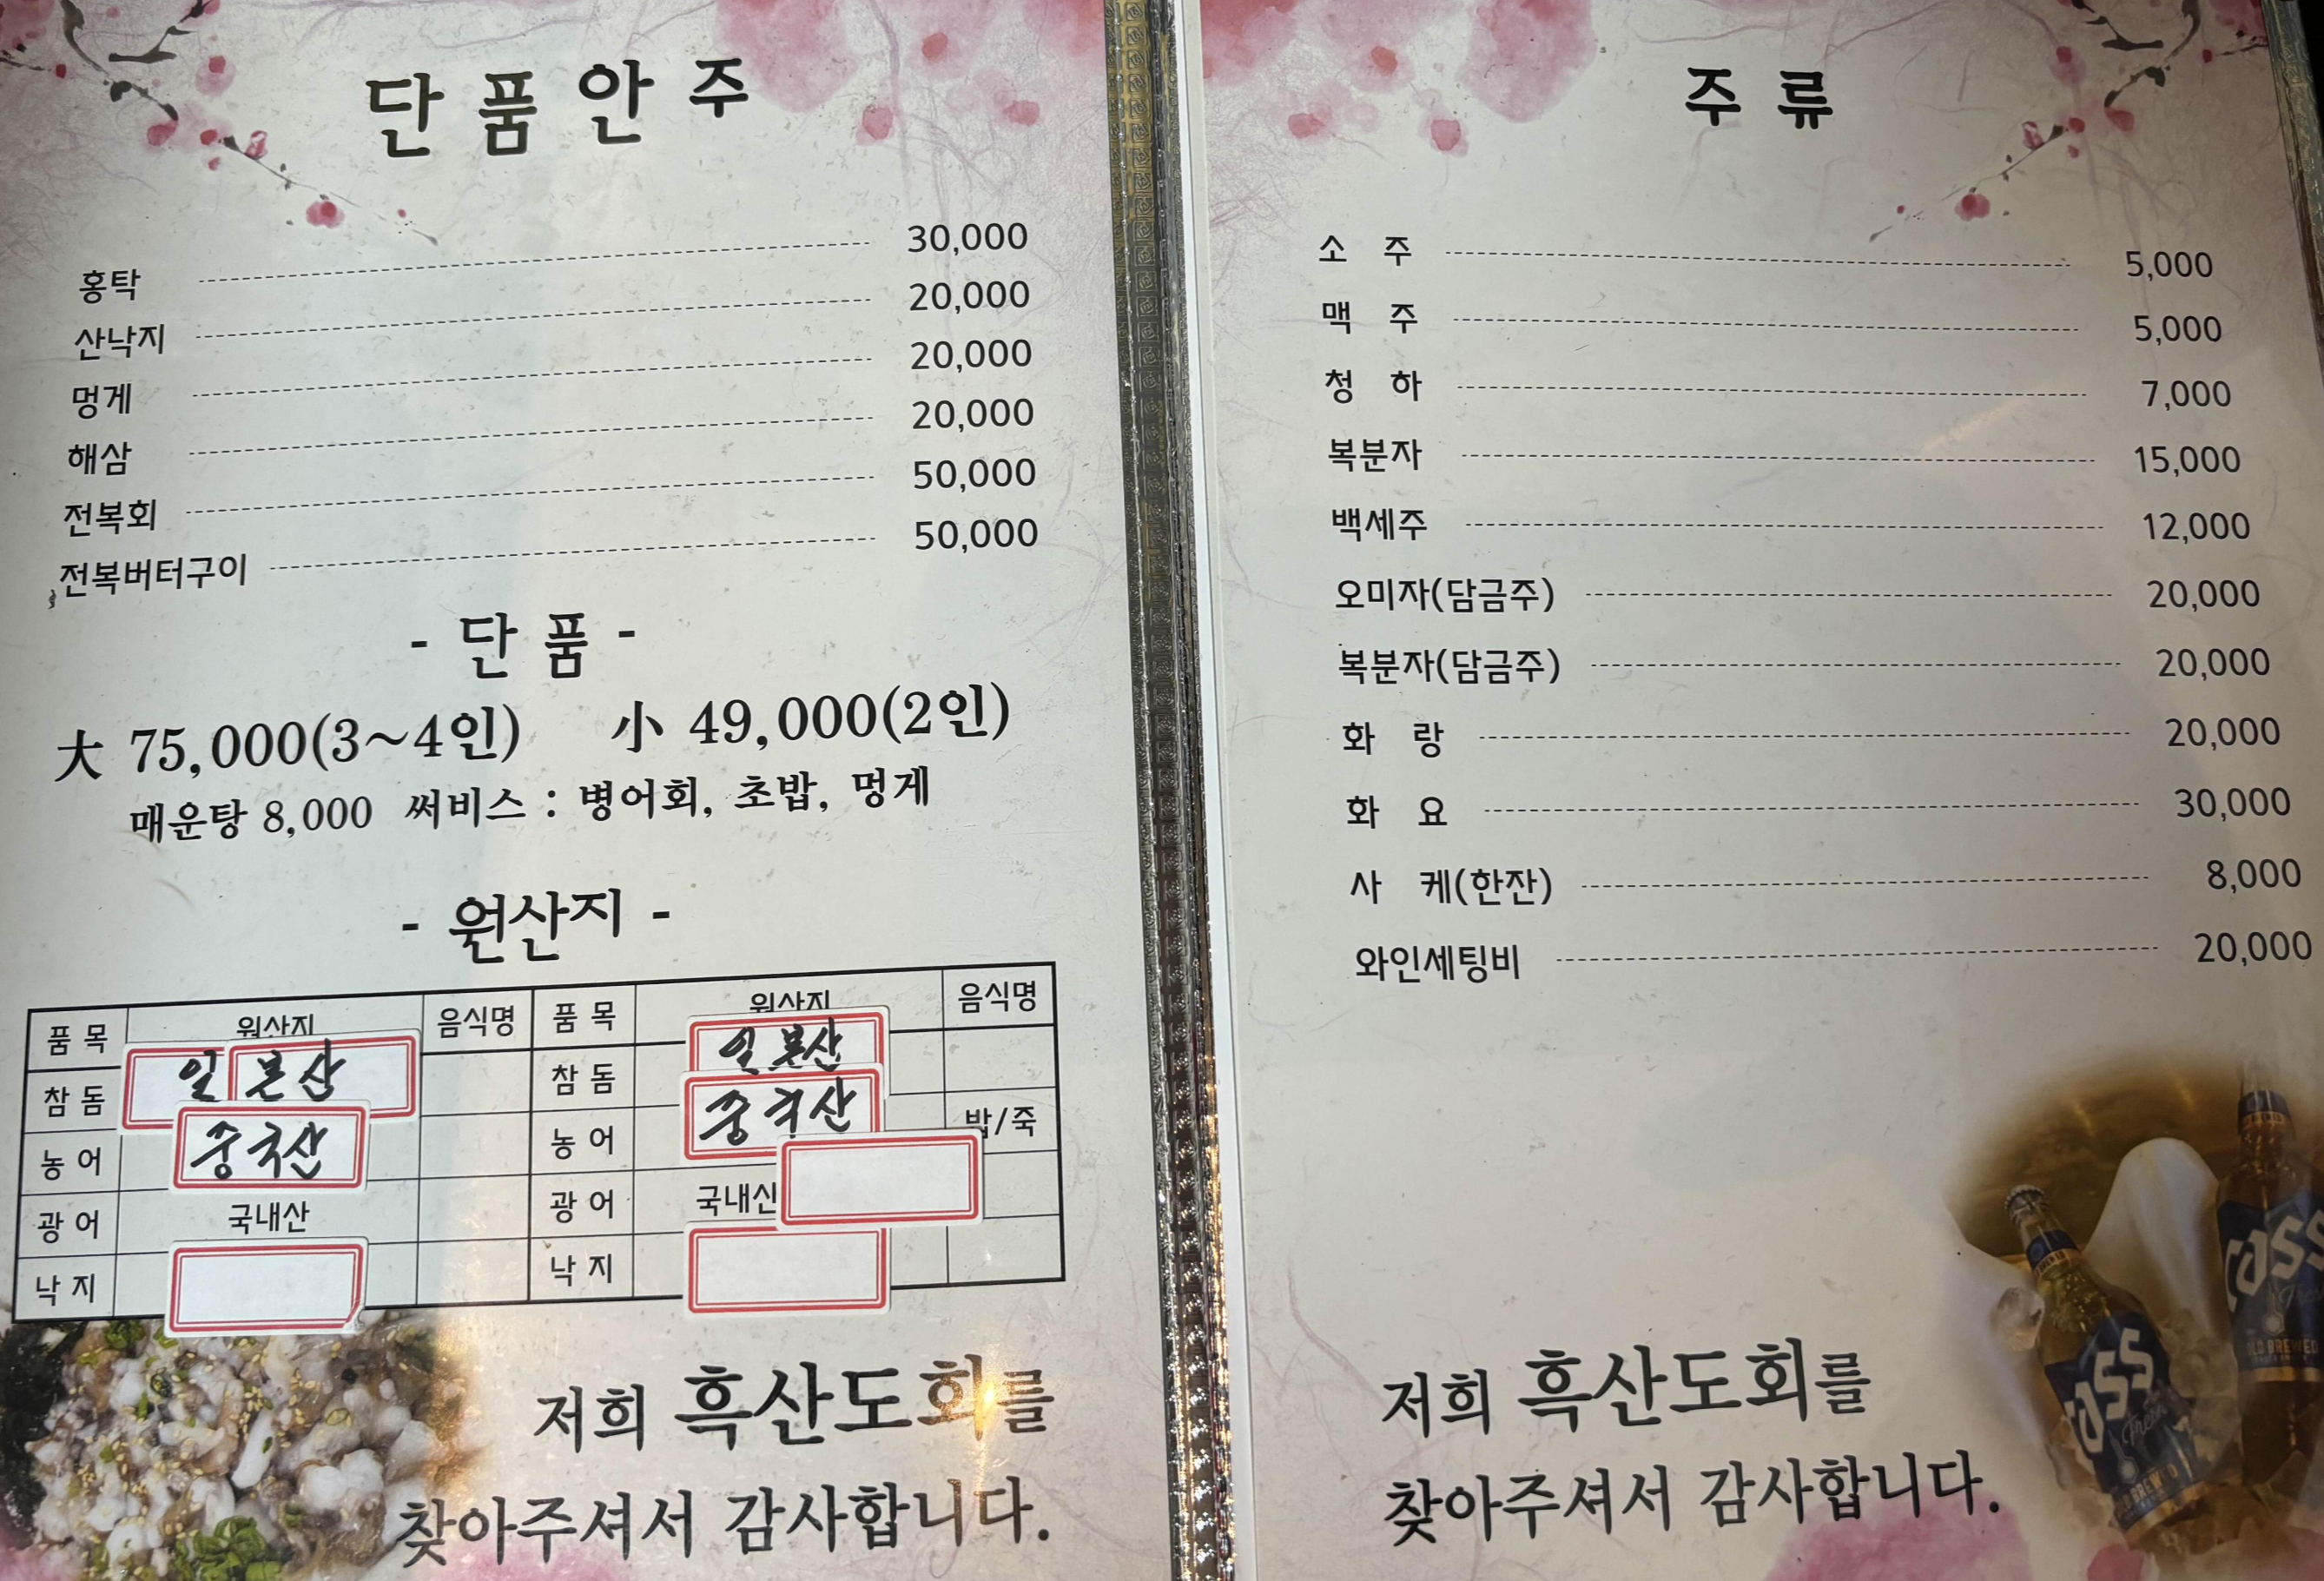 단품안주
홍탁 30,000
산낙지 20,000
멍게 20,000
해삼 20,000
전복회 50,000
전복버터구이 50,000
- 단 품 -
大 75,000(3~4인) 小 49,000(2인)
매운탕 8,000 써비스 : 병어회, 초밥, 멍게
- 원산지 -
품 목 원산지 음식명 품 목 원산지 음식명
참 돔 일본산 참 돔 일본산
농 어 중국산 농 어 중국산 밥/죽
광 어 국내산 광 어 국내산
낙 지 낙 지
저희 흑산도회를
찾아주셔서 감사합니다.
주 류
소 주 5,000
맥 주 5,000
청 하 7,000
복분자 15,000
백세주 12,000
오미자(담금주) 20,000
복분자(담금주) 20,000
화 랑 20,000
화 요 30,000
사 케(한잔) 8,000
와인세팅비 20,000
저희 흑산도회를
찾아주셔서 감사합니다.
Cass
Fresh
Cass